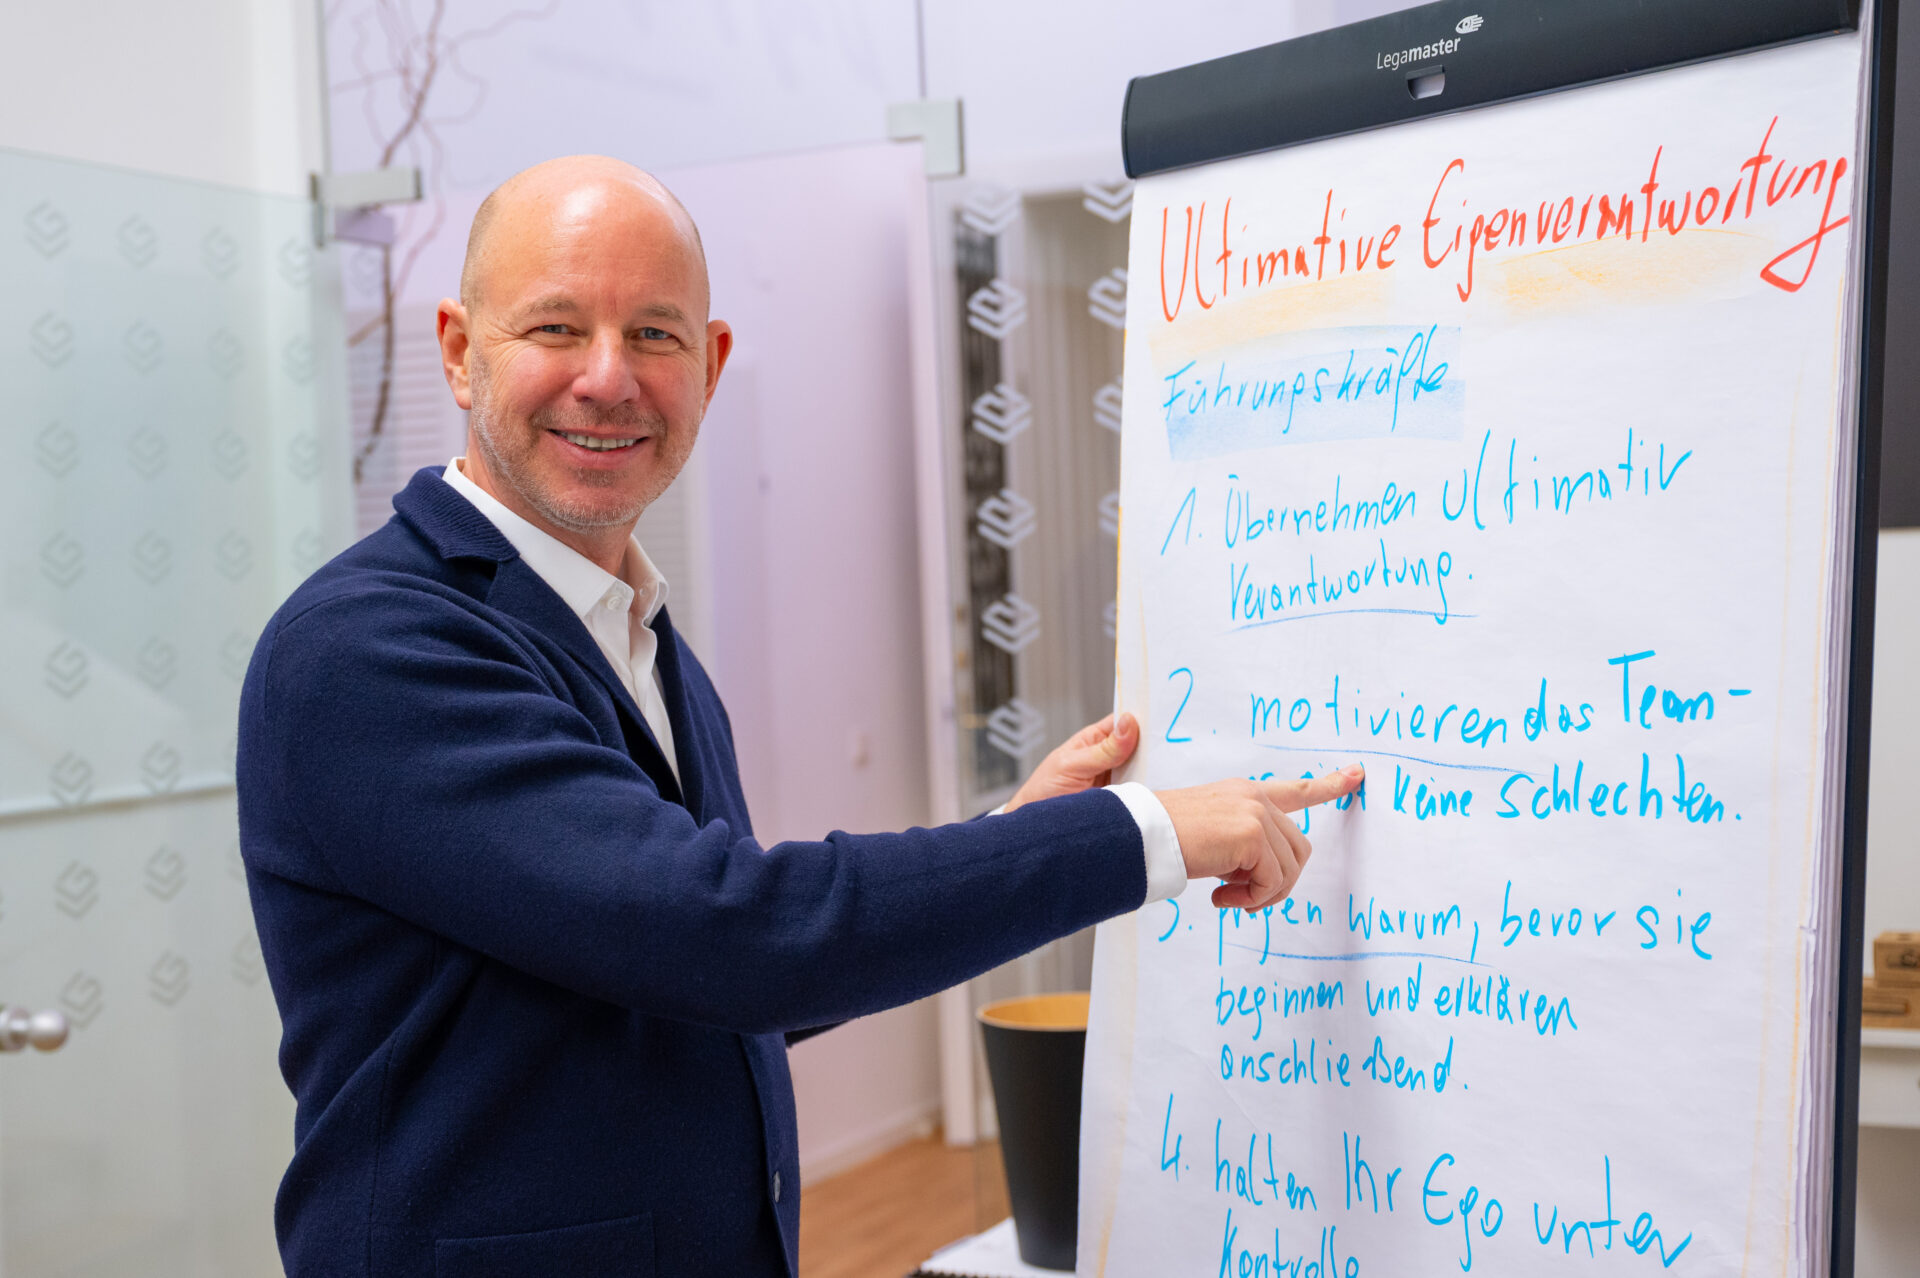 Legamaster
Ultimative Eigenverantwortung
Führungskräfte
1. Übernehmen ultimativ
Verantwortung.
2. motivieren das Team-
es gibt keine Schlechten.
3. fragen warum, bevor sie
beginnen und erklären
anschließend.
4. halten Ihr Ego unter
Kontrolle